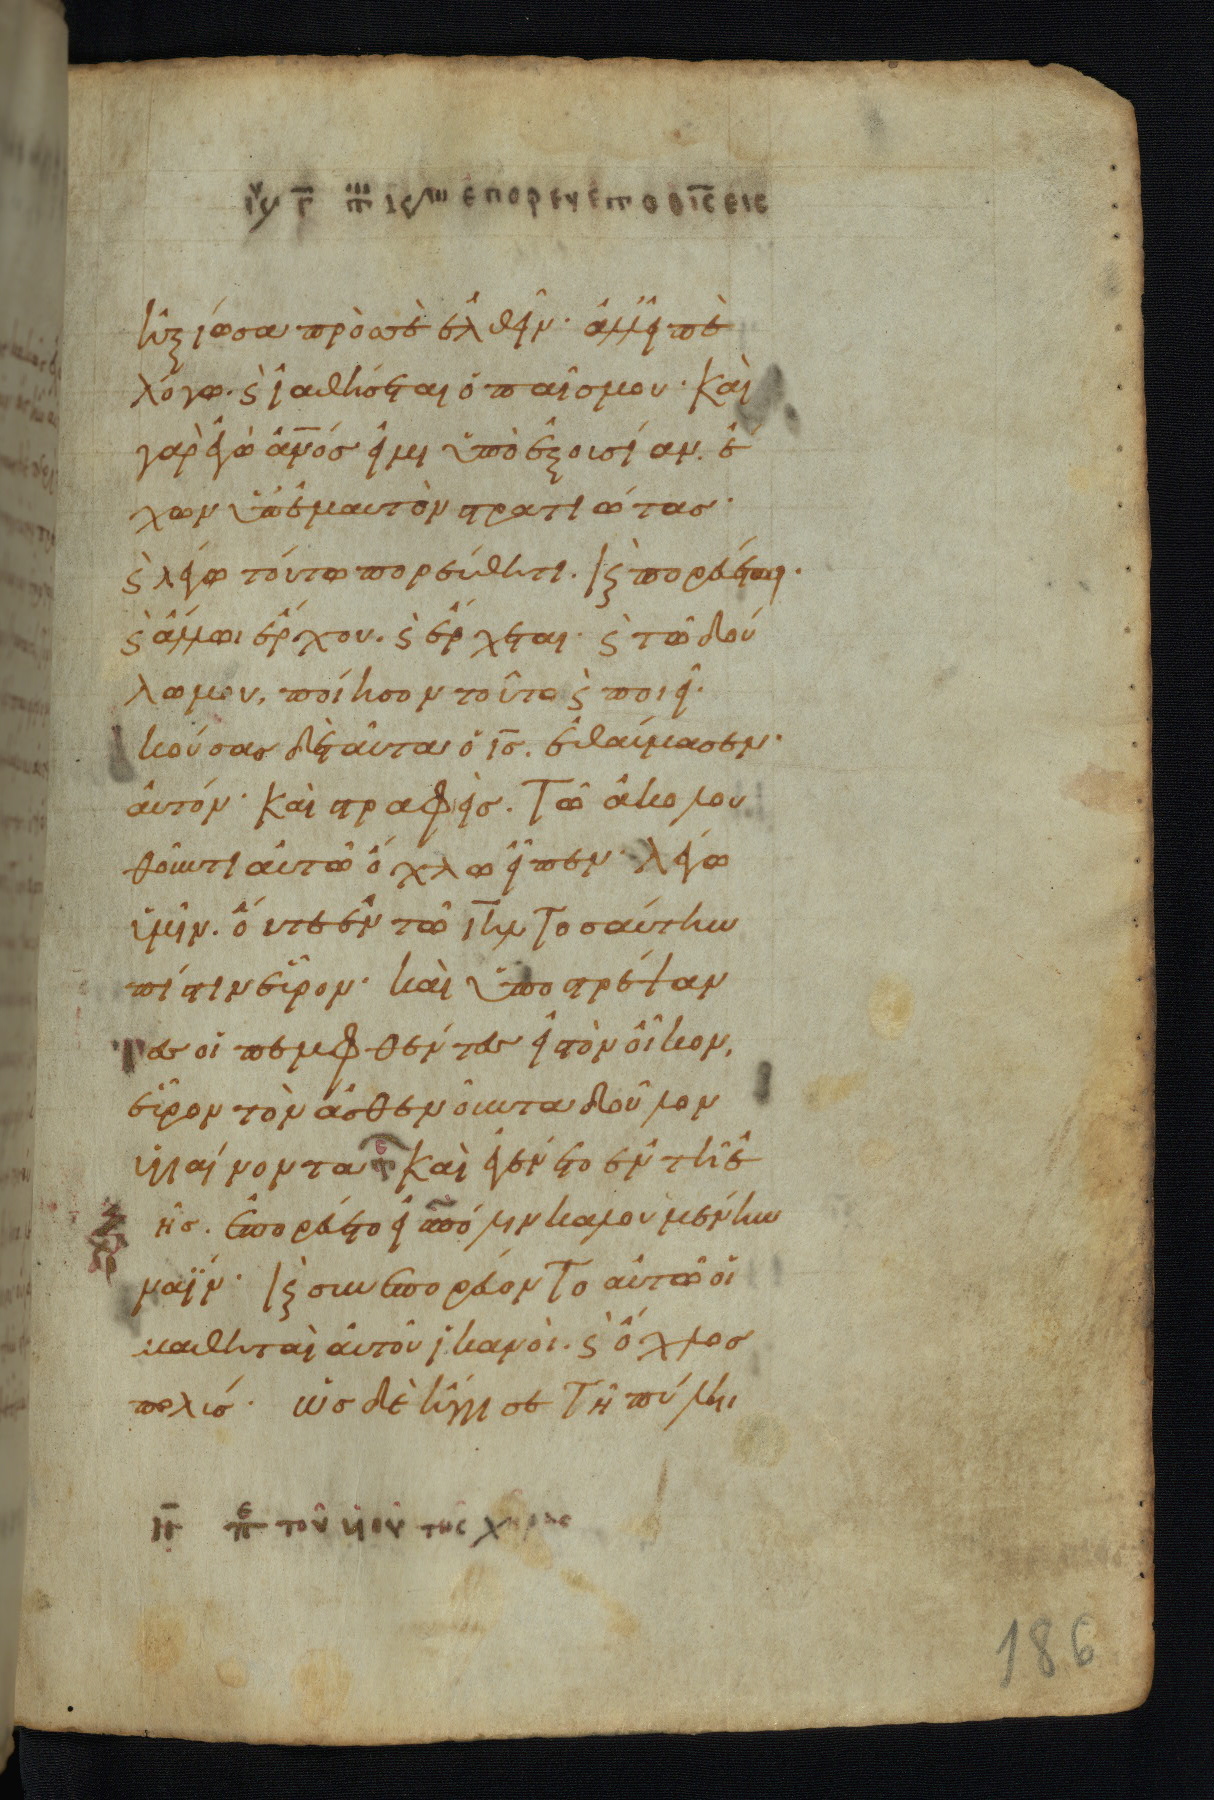 ἠξίωσα πρὸς σὲ ἐλθεῖν· ἀλλὰ εἰπὲ
λόγω· ϛ ἰαθήσεται ὁ παῖς μου· καὶ
γὰρ ἐγὼ ἄνος εἰμι ὑπὸ ἐξουσίαν. ἔ
χων ὑπ' ἐμαυτὸν στρατιώτας·
ϛ λέγω τούτω πορεύθητι. ϛ πορεύεται·
ϛ ἄλλω ἔρχου. ϛ ἔρχεται· ϛ τῶ δού
λω μου, ποίησον τοῦτο ϛ ποιεῖ·
κούσας δὲ ταῦτα ὁ ις. ἐθαύμασεν·
αὐτόν· καὶ στραφεὶς. τῶ ἀκολου
θοῦντι αὐτῶ ὄχλω εἶπεν· λέγω
ὑμῖν. οὔτε ἐν τῶ ιηλ τοσαύτην
πίστιν εὗρον· καὶ ὑποστρέψαν
τες οἱ πεμφθέντες εἰς τὸν οἶκον,
εὗρον τὸν ἀσθενοῦντα δοῦλον
ὑγιαίνοντα καὶ ἐγένετο ἐν τῆ ἑ
ξῆς. ἐπορεύετο εἰς πόλιν καλουμένην
ναΐν· ϛ συνεπορεύοντο αὐτῶ οἱ
μαθηταὶ αὐτοῦ ἱκανοὶ. ϛ ὄχλος
πολύς· ὡς δὲ ἤγγισε τῆ πύλη
τοῦ υἱοῦ τῆς χήρας
186